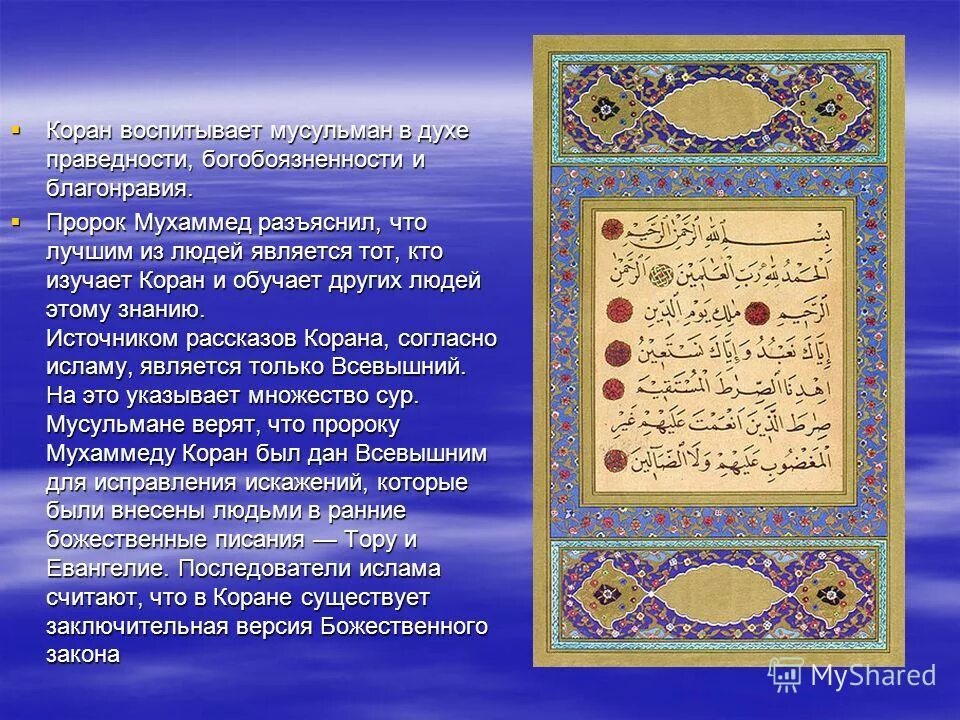 Коран воспитывает мусульман в духе
праведности, богобоязненности и
благонравия.
Пророк Мухаммед разъяснил, что
лучшим из людей является тот, кто
изучает Коран и обучает других людей
этому знанию.
Источником рассказов Корана, согласно
исламу, является только Всевышний.
На это указывает множество сур.
Мусульмане верят, что пророку
Мухаммеду Коран был дан Всевышним
для исправления искажений, которые
были внесены людьми в ранние
божественные писания — Тору и
Евангелие. Последователи ислама
считают, что в Коране существует
заключительная версия Божественного
закона
بِسْمِ اللهِ الرَّحْمٰنِ الرَّحِيمِ
اَلْحَمْدُ لِلّٰهِ رَبِّ الْعَالَمِينَ اَلرَّحْمٰنِ
الرَّحِيمِ مَالِكِ يَوْمِ الدِّينِ
اِيَّاكَ نَعْبُدُ وَاِيَّاكَ نَسْتَعِينُ
اِهْدِنَا الصِّرَاطَ الْمُسْتَقِيمَ
صِرَاطَ الَّذِينَ اَنْعَمْتَ عَلَيْهِمْ غَيْرِ
الْمَغْضُوبِ عَلَيْهِمْ وَلَا الضَّالِّينَ
MyShared